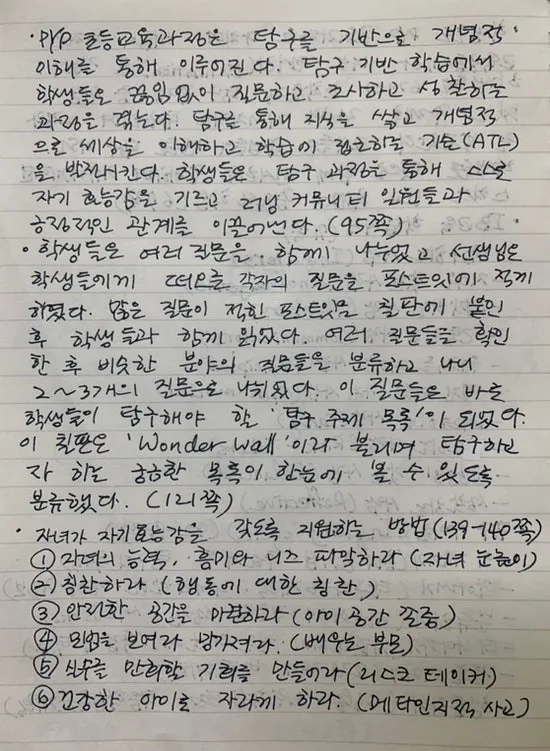 · PYP 초등교육과정은 탐구를 기반으로 개념적
이해를 통해 이루어진다. 탐구 기반 학습에서
학생들은 끊임없이 질문하고 조사하고 성찰하는
과정을 겪는다. 탐구를 통해 지식을 쌓고 개념적
으로 세상을 이해하고 학습에 접근하는 기술(ATL)
을 발전시킨다. 학생들은 탐구 과정을 통해 스스로
자기 효능감을 기르고 러닝 커뮤니티 일원들과
긍정적인 관계를 이끌어낸다. (95쪽)
· 학생들은 여러 질문을 함께 나누었고 선생님은
학생들에게 떠오르는 각자의 질문을 포스트잇에 적게
하였다. 많은 질문이 적힌 포스트잇을 칠판에 붙인
후 학생들과 함께 읽었다. 여러 질문들을 확인
한 후 비슷한 분야의 질문들을 분류하고 나니
2~3개의 질문으로 나뉘었다. 이 질문들은 바로
학생들이 탐구해야 할 '탐구 주제 목록'이 되었다.
이 칠판은 'Wonder wall'이라 불리며 탐구하고
자 하는 궁금한 목록이 한눈에 볼 수 있도록
분류했다. (121쪽)
· 자녀가 자기효능감을 갖도록 지원하는 방법(139-140쪽)
① 자녀의 능력, 흥미와 니즈 파악하라 (자녀 눈높이)
② 칭찬하라 (행동에 대한 칭찬)
③ 안전한 공간을 마련하라 (아이 공간 존중)
④ 모범을 보여라 당겨져라. (배우는 부모)
⑤ 실수를 만회할 기회를 만들어라 (리스크 테이커)
⑥ 건강한 아이로 자라게 하라. (메타인지적 사고)